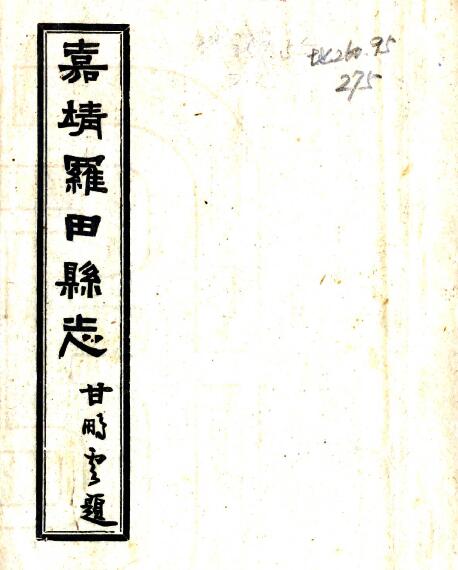 嘉靖羅田縣志
甘鵬雲題
地260.95
275